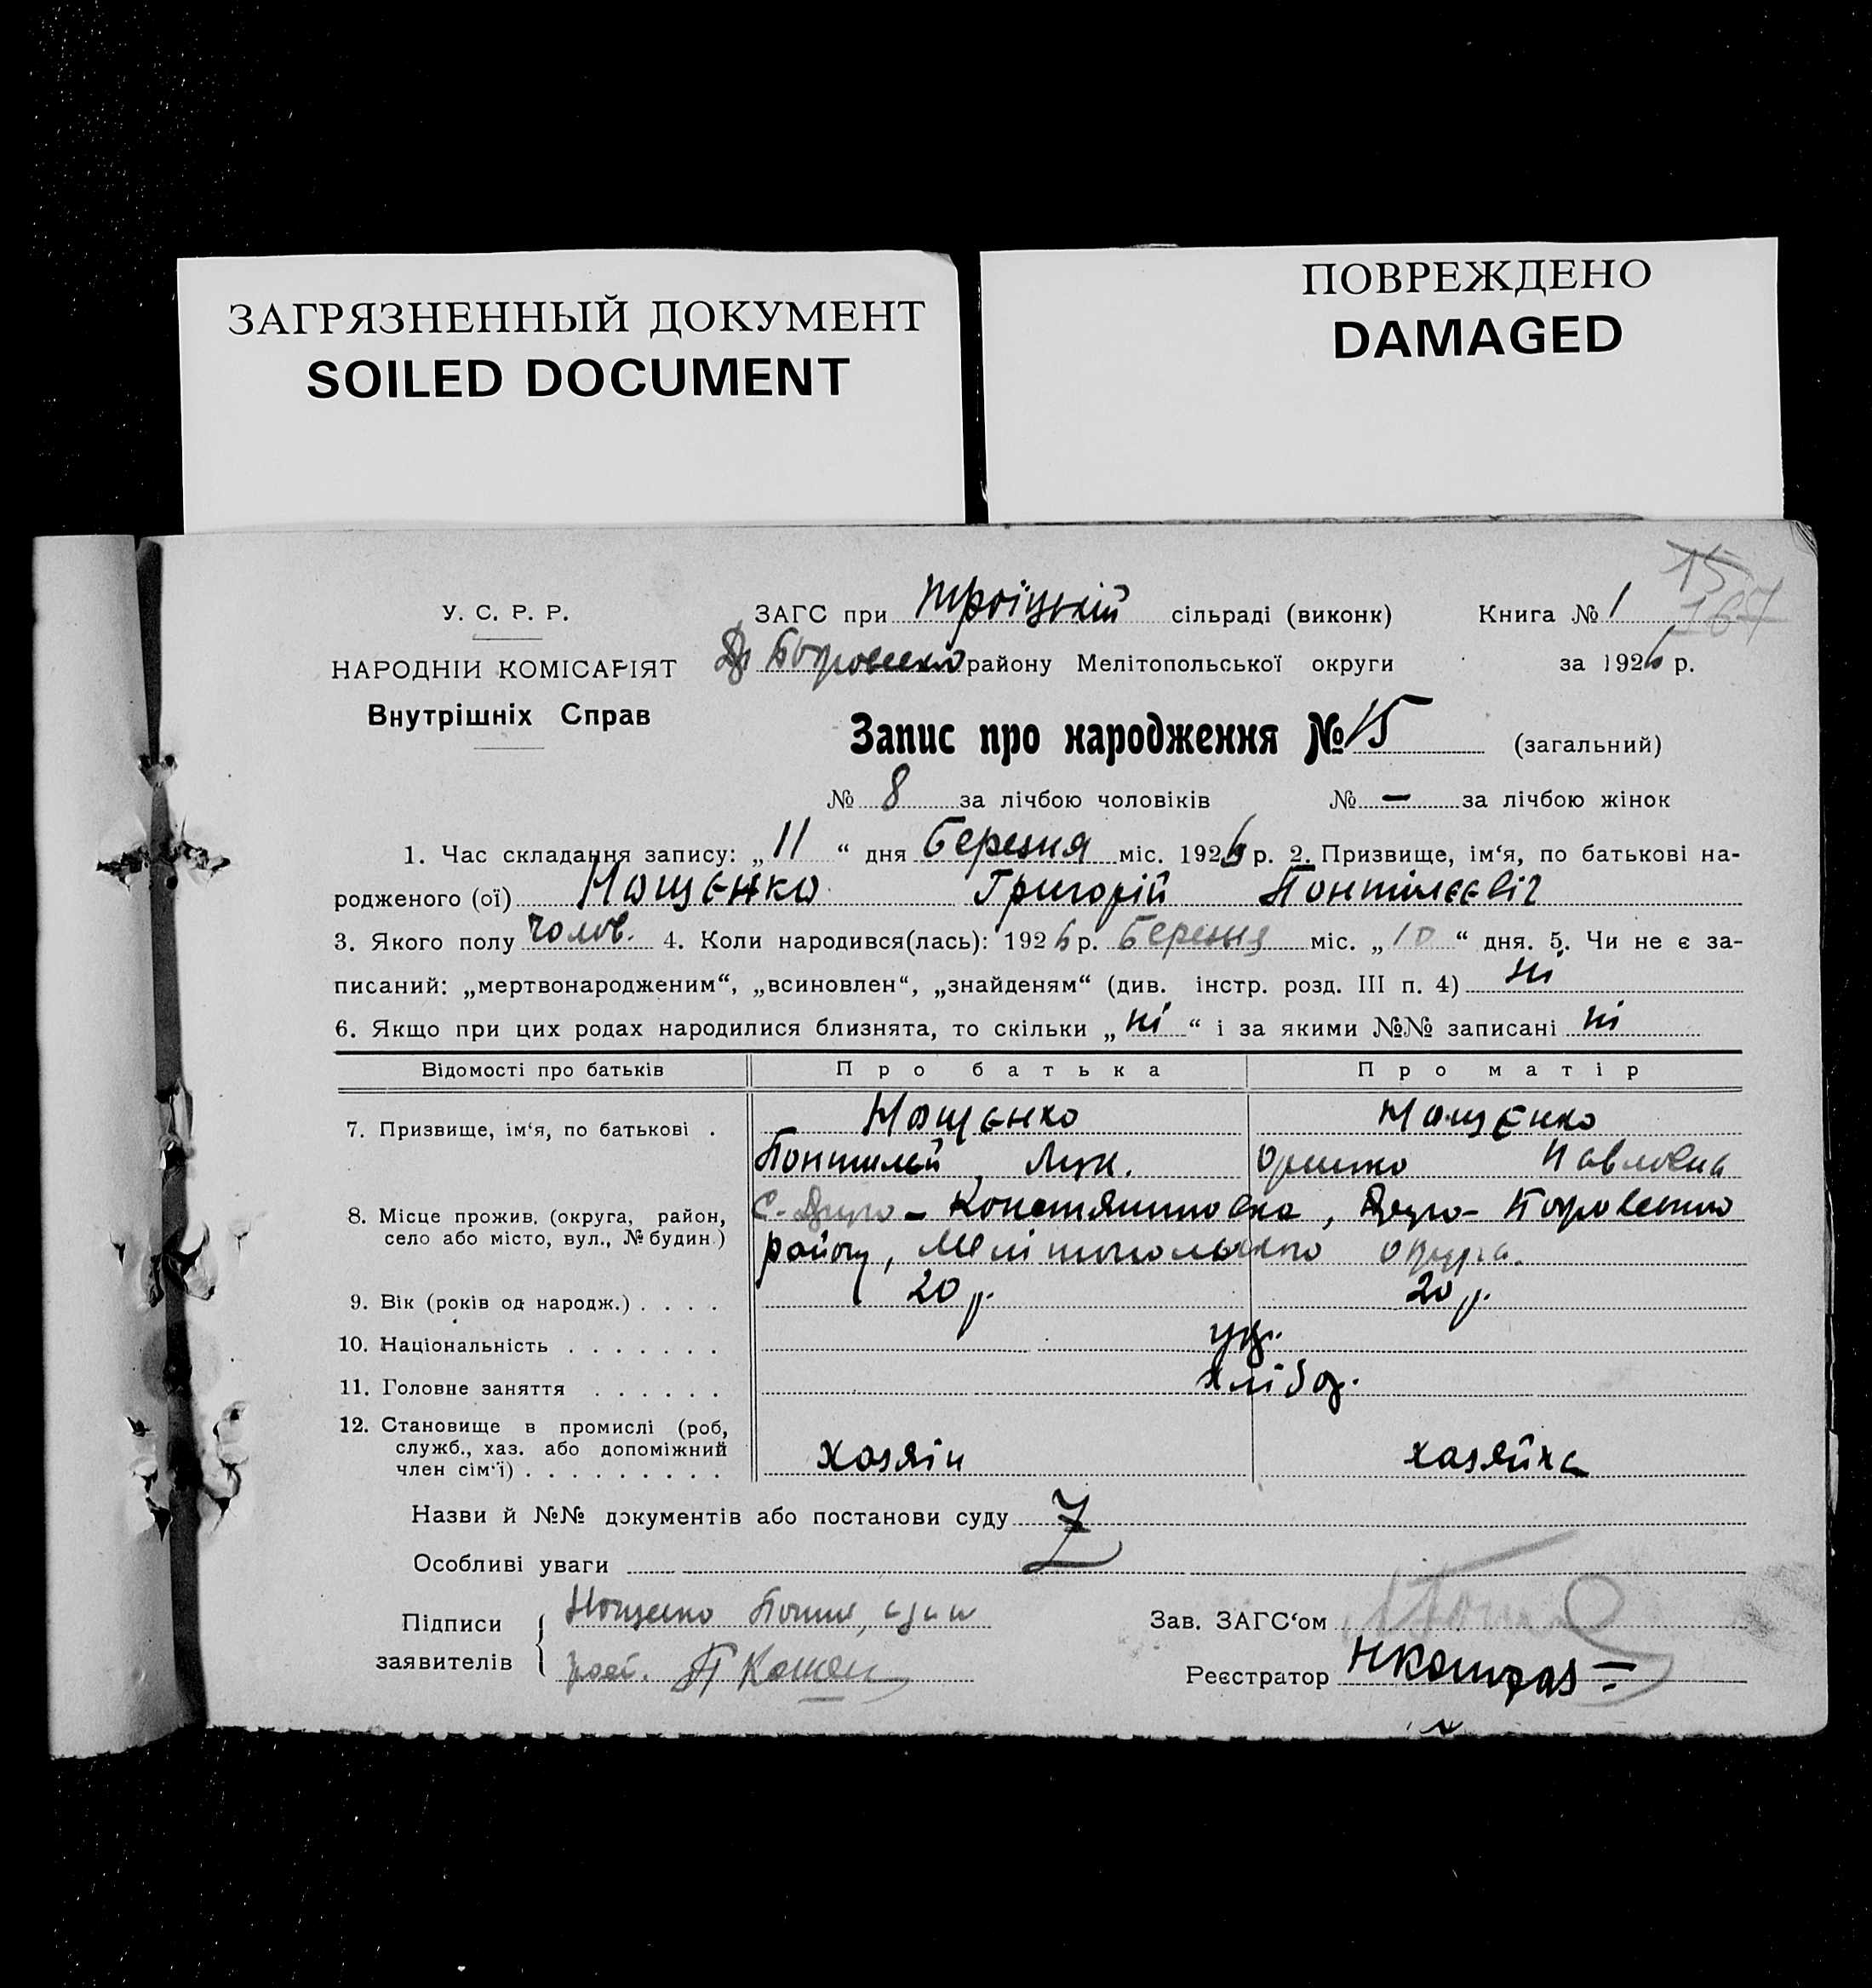 ЗАГРЯЗНЕННЫЙ ДОКУМЕНТ
SOILED DOCUMENT
ПОВРЕЖДЕНО
DAMAGED
15
167
У. С. Р. Р.
НАРОДНІЙ КОМІСАРІЯТ
Внутрішніх Справ
ЗАГС при Троіцькій сільраді (виконк) Книга № 1
району Мелітопольської округи за 1926 р.
Запис про народження № 15 (загальний)
№ 8 за лічбою чоловіків № — за лічбою жінок
1. Час складання запису: „ 11 “ дня Березня міс. 1926 р. 2. Призвище, ім‘я, по батькові на-
родженого (ої) Нощенко Григорій Понтілєєвіч
3. Якого полу Чолов. 4. Коли народився(лась): 1926 р. Березня міс. „ 10 “ дня. 5. Чи не є за-
писаний: „мертвонародженим“, „всиновлен“, „знайденям“ (див. інстр. розд. III п. 4) ні
6. Якщо при цих родах народилися близнята, то скільки „ ні “ і за якими №№ записані ні
Відомості про батьків Про батька Про матір
7. Призвище, ім‘я, по батькові . Нощенко Нощенко
Понтилей Лук. Павловна
8. Місце прожив. (округа, район, село або місто, вул., № будин.) с. - Константиновка,
району, Мелітопольского округа.
9. Вік (років од народж.) . . . . 20 р. 20 р.
10. Національність . . . . . . . укр.
11. Головне заняття . . . . . . хлібор.
12. Становище в промислі (роб, служб., хаз. або допоміжний член сім‘ї) . . . . . . . . . хозяін хазяйка
Назви й №№ документів або постанови суду
Особливі уваги
Підписи заявителів Нощенко
Зав. ЗАГС‘ом
Реєстратор